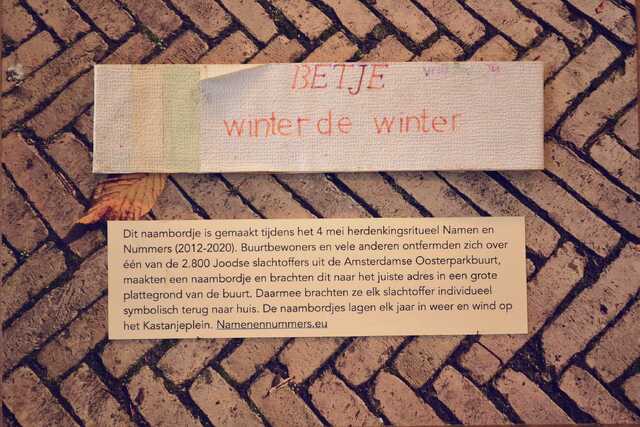 BETJE
winter de winter
Dit naambordje is gemaakt tijdens het 4 mei herdenkingsritueel Namen en
Nummers (2012-2020). Buurtbewoners en vele anderen ontfermden zich over
één van de 2.800 Joodse slachtoffers uit de Amsterdamse Oosterparkbuurt,
maakten een naambordje en brachten dit naar het juiste adres in een grote
plattegrond van de buurt. Daarmee brachten ze elk slachtoffer individueel
symbolisch terug naar huis. De naambordjes lagen elk jaar in weer en wind op
het Kastanjeplein. Namenennummers.eu